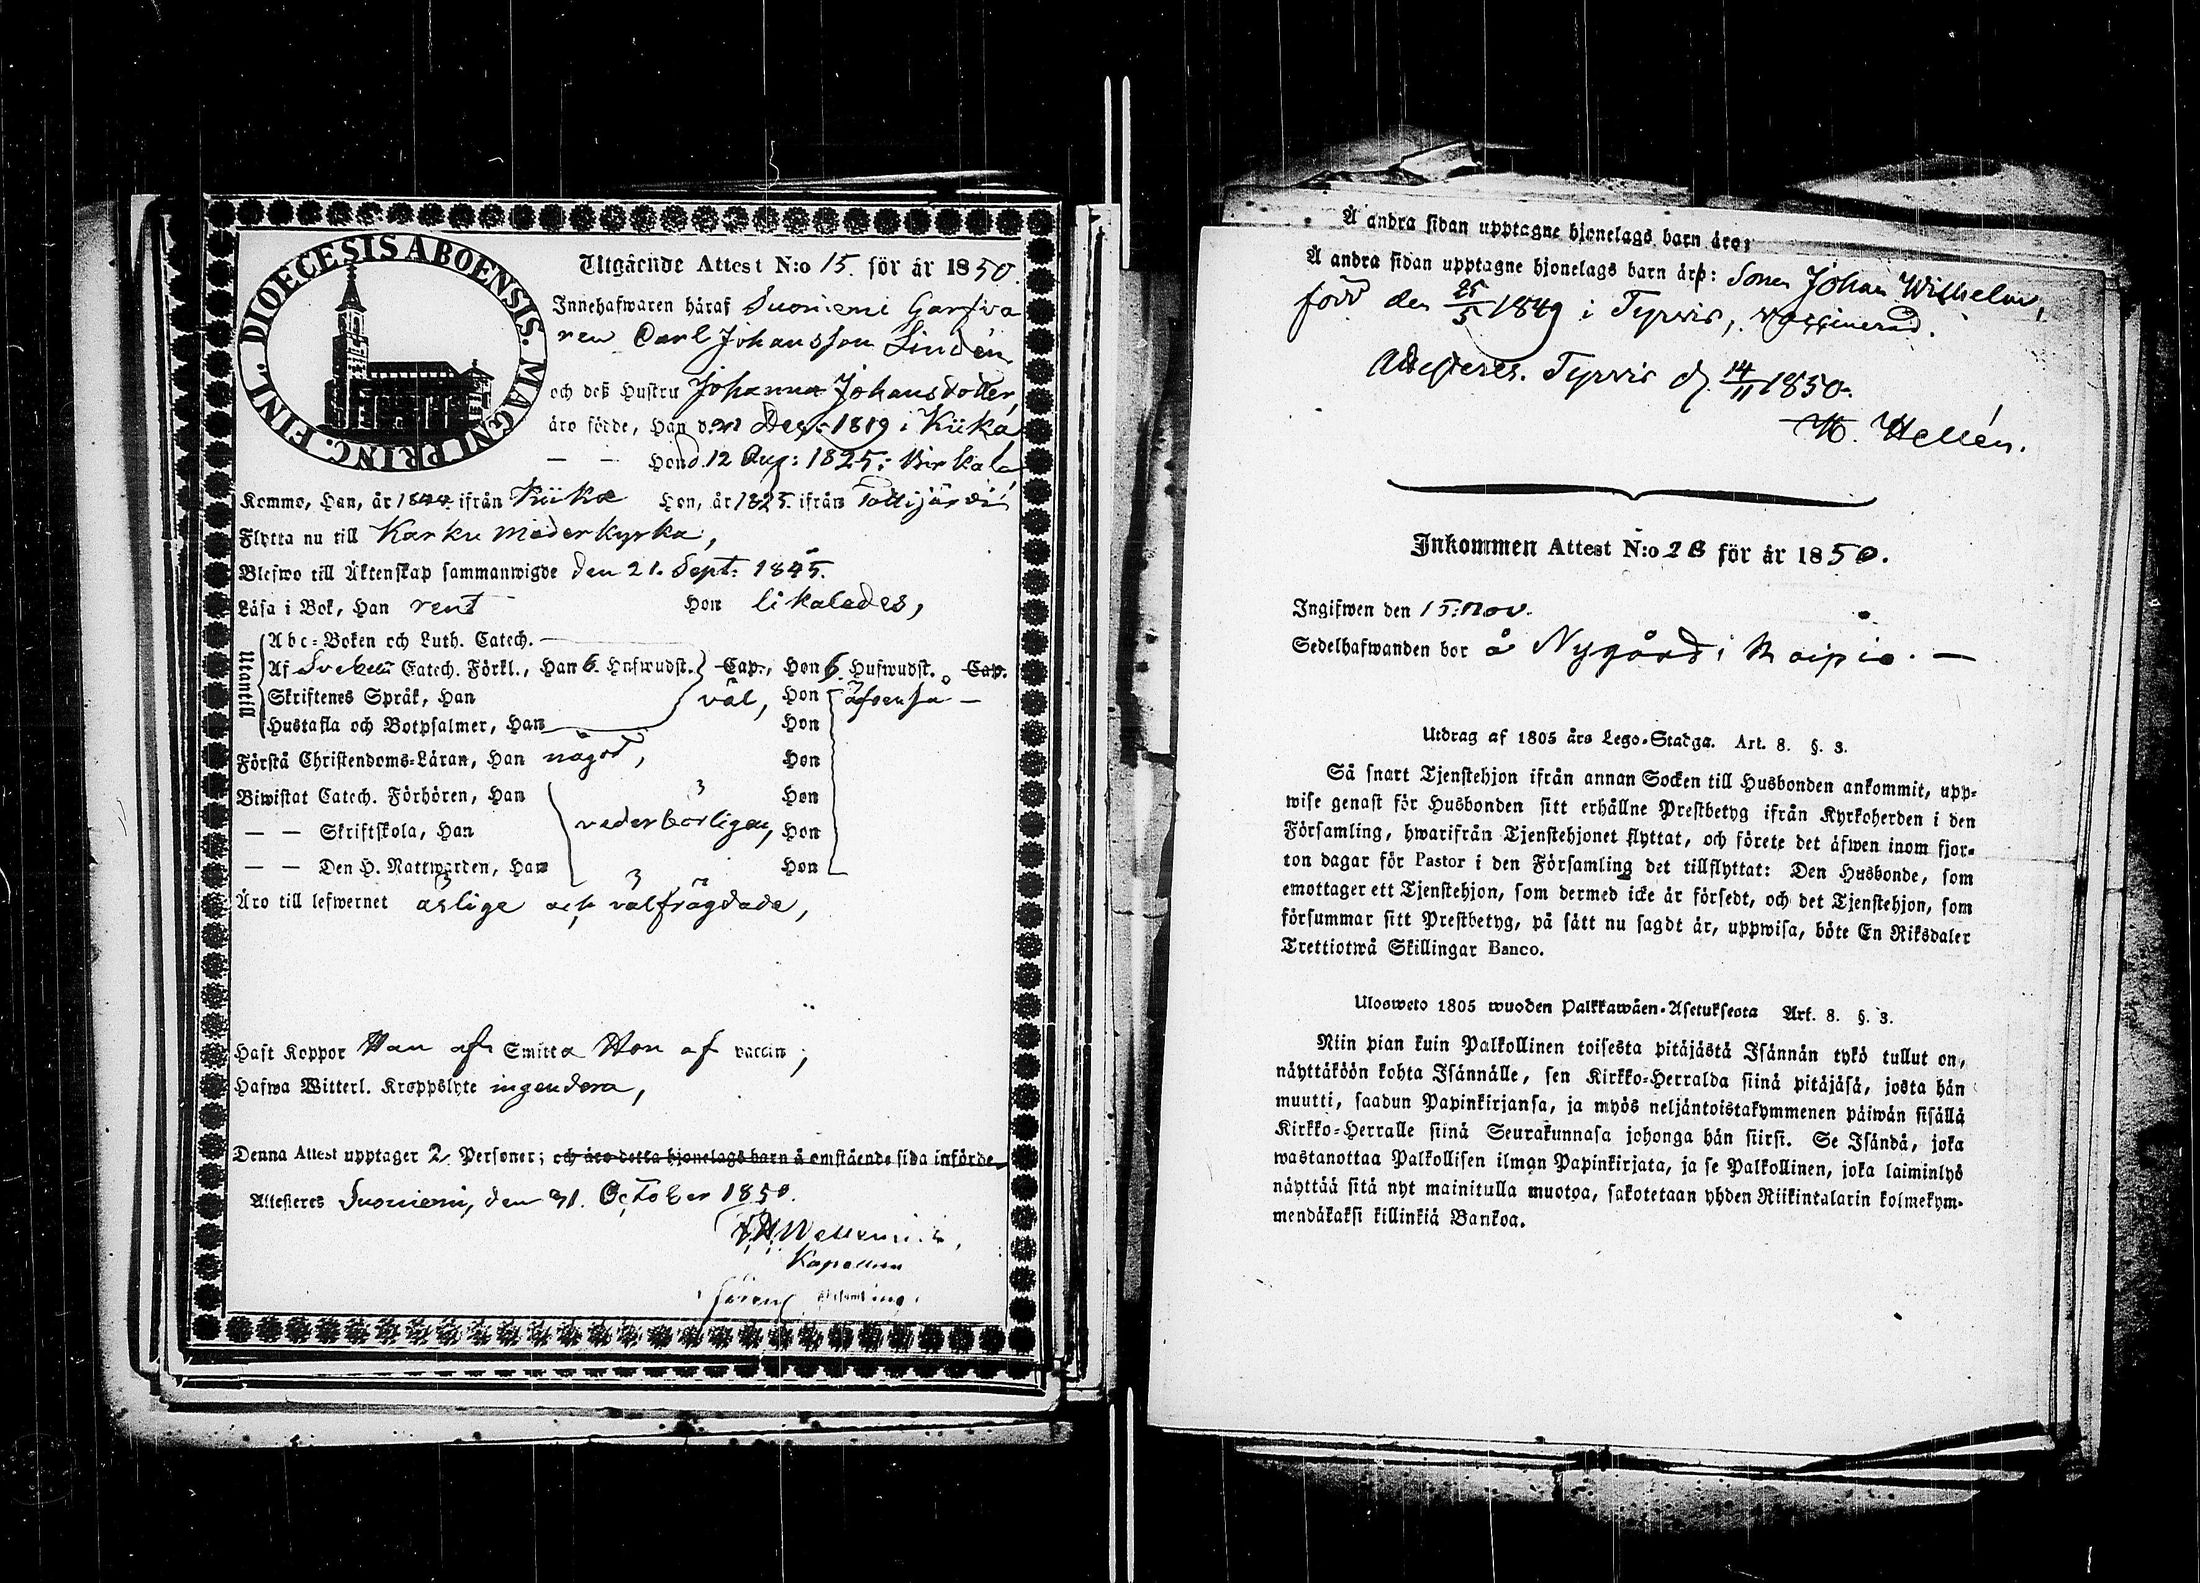 DIOECESIS ABOENSIS. MAGNI PRINC. FINL.
Utgående Attest N:o 15. för år 1850.
Innehafwaren häraf Suoniemi Garfva
ren Carl Johansson Lindén
och deß Hustru Johanna Johansdotter,
äro födde, Han d. 21 Dec: 1819 i Kiika
— — Hon d. 12 Aug: 1825 i Birkala
Komne, Han, år 1844 ifrån Kiika Hon, år 1825. ifrån Tottijärvi
Flytta nu till Karku Moderkyrka,
Blefwo till Äktenskap sammanwigde den 21. Sept: 1845.
Läsa i Bok, Han rent Hon likaledes,
Utantill
Abc-Boken och Luth. Catech.
Af Svebelii Catech. Förkl., Han 6. Hufwudst. Cap., Hon 6. Hufwudst. Cap.
Skriftenes Språk, Han väl, Hon äfvenså —
Hustafla och Botpsalmer, Han Hon
Förstå Christendoms-Läran, Han något, Hon
Biwistat Catech. Förhören, Han Hon
— — Skriftskola, Han vederbörligen, Hon
— — Den H. Nattwarden, Han Hon
Äro till lefwernet ärlige och välfrägdade,
Haft Koppor Han af Smitta Hon af vaccin,
Hafwa Witterl. Kroppslyte ingendera,
Denna Attest upptager 2. Personer; och äro detta hjonelags barn å omstående sida införde.
Attesteres Suoniemi, den 31. October 1850.
Kapellan
Å andra sidan upptagne hjonelags barn äro:
Å andra sidan upptagne hjonelags barn äro: Sonen Johan Wilhelm,
född den 25/5 1849 i Tyrvis, vaccinerad.
Attesteres. Tyrvis d. 14/11 1850.
M. Hellén.
Inkommen Attest N:o 28 för år 1850.
Ingifwen den 15. Nov.
Sedelhafwanden bor å Nygård i Roipio. —
Utdrag af 1805 års Lego-Stadga. Art. 8. §. 3.
Så snart Tjenstehjon ifrån annan Socken till Husbonden ankommit, upp-
wise genast för Husbonden sitt erhållne Prestbetyg ifrån Kyrkoherden i den
Församling, hwarifrån Tjenstehjonet flyttat, och förete det äfwen inom fjor-
ton dagar för Pastor i den Församling det tillflyttat: Den Husbonde, som
emottager ett Tjenstehjon, som dermed icke är försedt, och det Tjenstehjon, som
försummar sitt Prestbetyg, på sätt nu sagdt är, uppwisa, böte En Riksdaler
Trettiotwå Skillingar Banco.
Ulosweto 1805 wuoden Palkkawäen-Asetuksesta Art. 8. §. 3.
Niin pian kuin Palkollinen toisesta pitäjästä Isännän tykö tullut on,
näyttäköön kohta Isännälle, sen Kirkko-Herralda siinä pitäjäsä, josta hän
muutti, saadun Papinkirjansa, ja myös neljäntoistakymmenen päiwän sisällä
Kirkko-Herralle siinä Seurakunnasa johonga hän siirsi. Se Isändä, joka
wastanottaa Palkollisen ilman Papinkirjata, ja se Palkollinen, joka laiminlyö
näyttää sitä nyt mainitulla muotoa, sakotetaan yhden Riikintalarin kolmekym-
mendäkaksi killinkiä Bankoa.